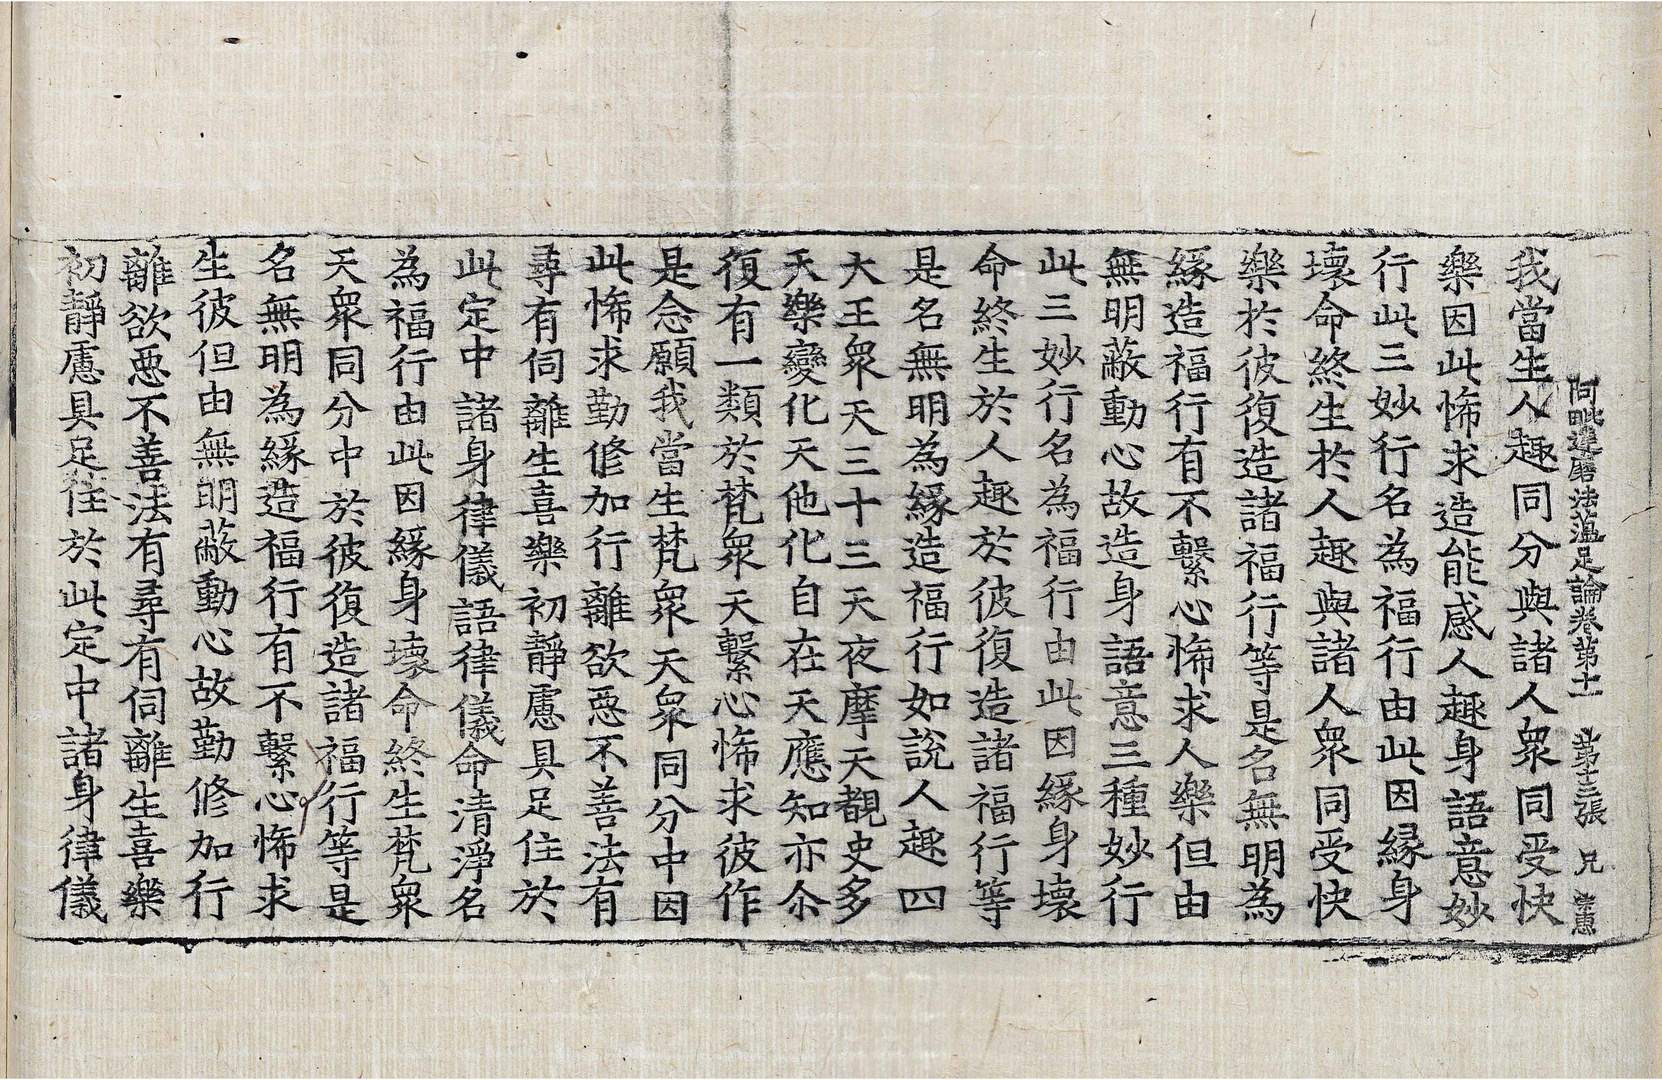 阿毗達磨法蘊足論卷第十一　第十三張　兄
我當生人趣同分與諸人衆同受快
樂因此悕求造能感人趣身語意妙
行此三妙行名為福行由此因緣身
壞命終生於人趣與諸人衆同受快
樂於彼復造諸福行等是名無明為
緣造福行有不繫心悕求人樂但由
無明蔽動心故造身語意三種妙行
此三妙行名為福行由此因緣身壞
命終生於人趣於彼復造諸福行等
是名無明為緣造福行如說人趣四
大王衆天三十三天夜摩天覩史多
天樂變化天他化自在天應知亦尒
復有一類於梵衆天繫心悕求彼作
是念願我當生梵衆天衆同分中因
此悕求勤修加行離欲惡不善法有
尋有伺離生喜樂初靜慮具足住於
此定中諸身律儀語律儀命清淨名
為福行由此因緣身壞命終生梵衆
天衆同分中於彼復造諸福行等是
名無明為緣造福行有不繫心悕求
生彼但由無明蔽動心故勤修加行
離欲惡不善法有尋有伺離生喜樂
初靜慮具足住於此定中諸身律儀